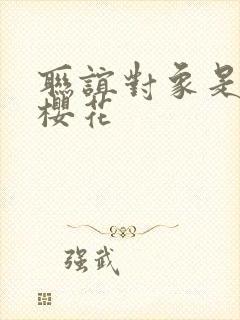 聯誼對象是
櫻花
强武